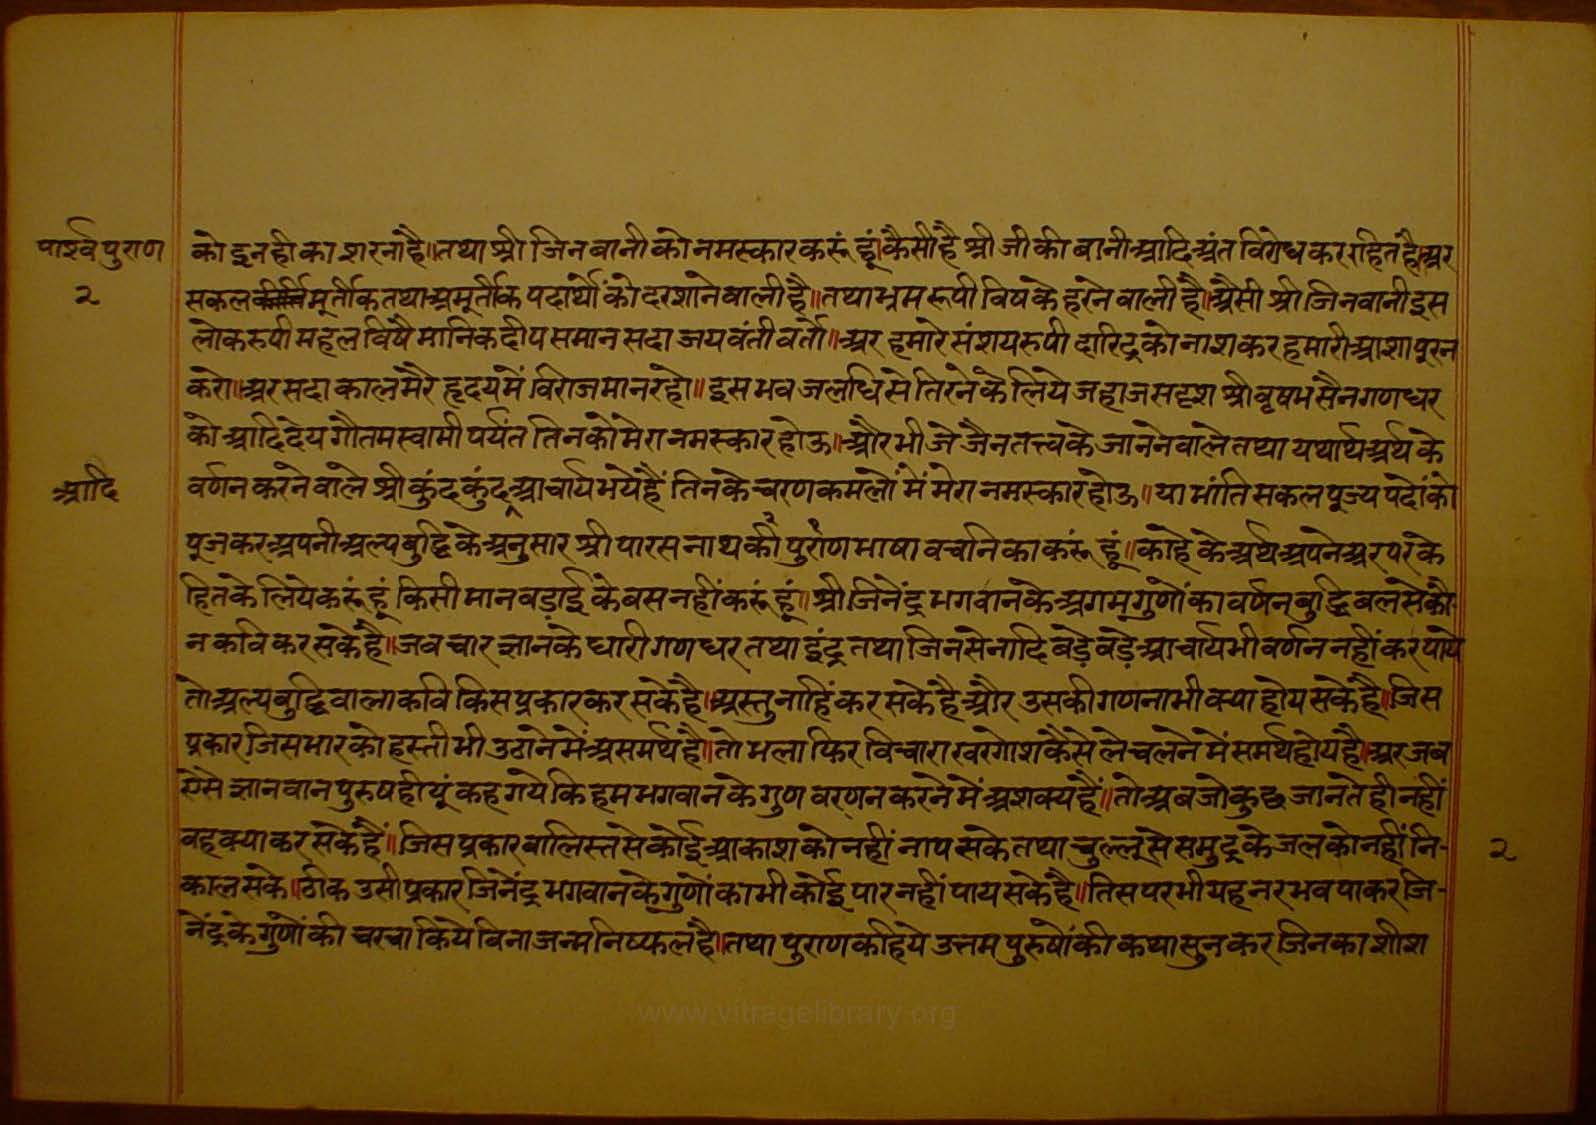 पार्श्व पुराण
२
को इनही का शरना है॥तथा श्री जिन बानी को नमस्कार करूं हूं॥कैसी है श्री जी की बानी आदि अंत विरोध कर रहित है॥अर
सकल मूर्तीक तथा अमूर्तीक पदार्थों को दरशाने वाली है॥तथा भ्रम रूपी विष के हरने वाली है॥ऐसी श्री जिनवानी इस
लोक रुपी महल विषै मानिक दीप समान सदा जयवंती वर्तो॥अर हमारे संशय रुपी दारिद्र को नाश कर हमारी आशा पूरन
करो॥अर सदा काल मेरे हृदय में विराजमान रहो॥ इस भव जलधि से तिरने के लिये जहाज सदृश श्री वृषभ सैन गणधर
को आदि देय गौतम स्वामी पर्यंत तिनको मेरा नमस्कार होऊ॥और भी जे जैन तत्त्व के जानने वाले तथा यथार्थ अर्थ के
आदि
वर्णन करने वाले श्री कुंद कुंद‸आचार्य भये हैं तिनके चरण कमलों में मेरा नमस्कार होऊ॥या भांति सकल पूज्य पदों को
पूजकर अपनी अल्प बुद्धि के अनुसार श्री पारसनाथ की पुराण भाषा वचनिका करूं हूं॥काहे के अर्थ अपने अर पर के
हित के लिये करूं हूं किसी मान बड़ाई के बस नहीं करूं हूं॥ श्री जिनेंद्र भगवान के अगम गुणों का वर्णन बुद्धि बल से कौ-
न कवि कर सके है॥जब चार ज्ञान के धारी गणधर तथा इंद्र तथा जिनसेनादि बड़े बड़े आचार्य भी वर्णन नहीं कर पाये
तो अल्प बुद्धि वाला कवि किस प्रकार कर सके है॥अस्तु नाहिं कर सके है और उसकी गणना भी क्या होय सके है॥जिस
प्रकार जिस भार को हस्ती भी उठाने में असमर्थ है॥तो भला फिर विचारा खरगोश कैसे ले चलने में समर्थ होय है॥अर जब
ऐसे ज्ञानवान पुरुष ही यूं कह गये कि हम भगवान के गुण वरणन करने में अशक्य हैं॥तो अब जो कुछ जानते ही नहीं
वह क्या कर सके हैं॥जिस प्रकार बालिस्त से कोई आकाश को नहीं नाप सके तथा चुल्लू से समुद्र के जल को नहीं नि-
२
काल सके॥ठीक उसी प्रकार जिनेंद्र भगवान के गुणों का भी कोई पार नहीं पाय सके है॥तिस पर भी यह नर भव पाकर जि-
नेंद्र के गुणों की चरचा किये विना जन्म निष्फल है॥तथा पुराण कहिये उत्तम पुरुषों की कथा सुनकर जिनका शीश
www.vitragelibrary.org